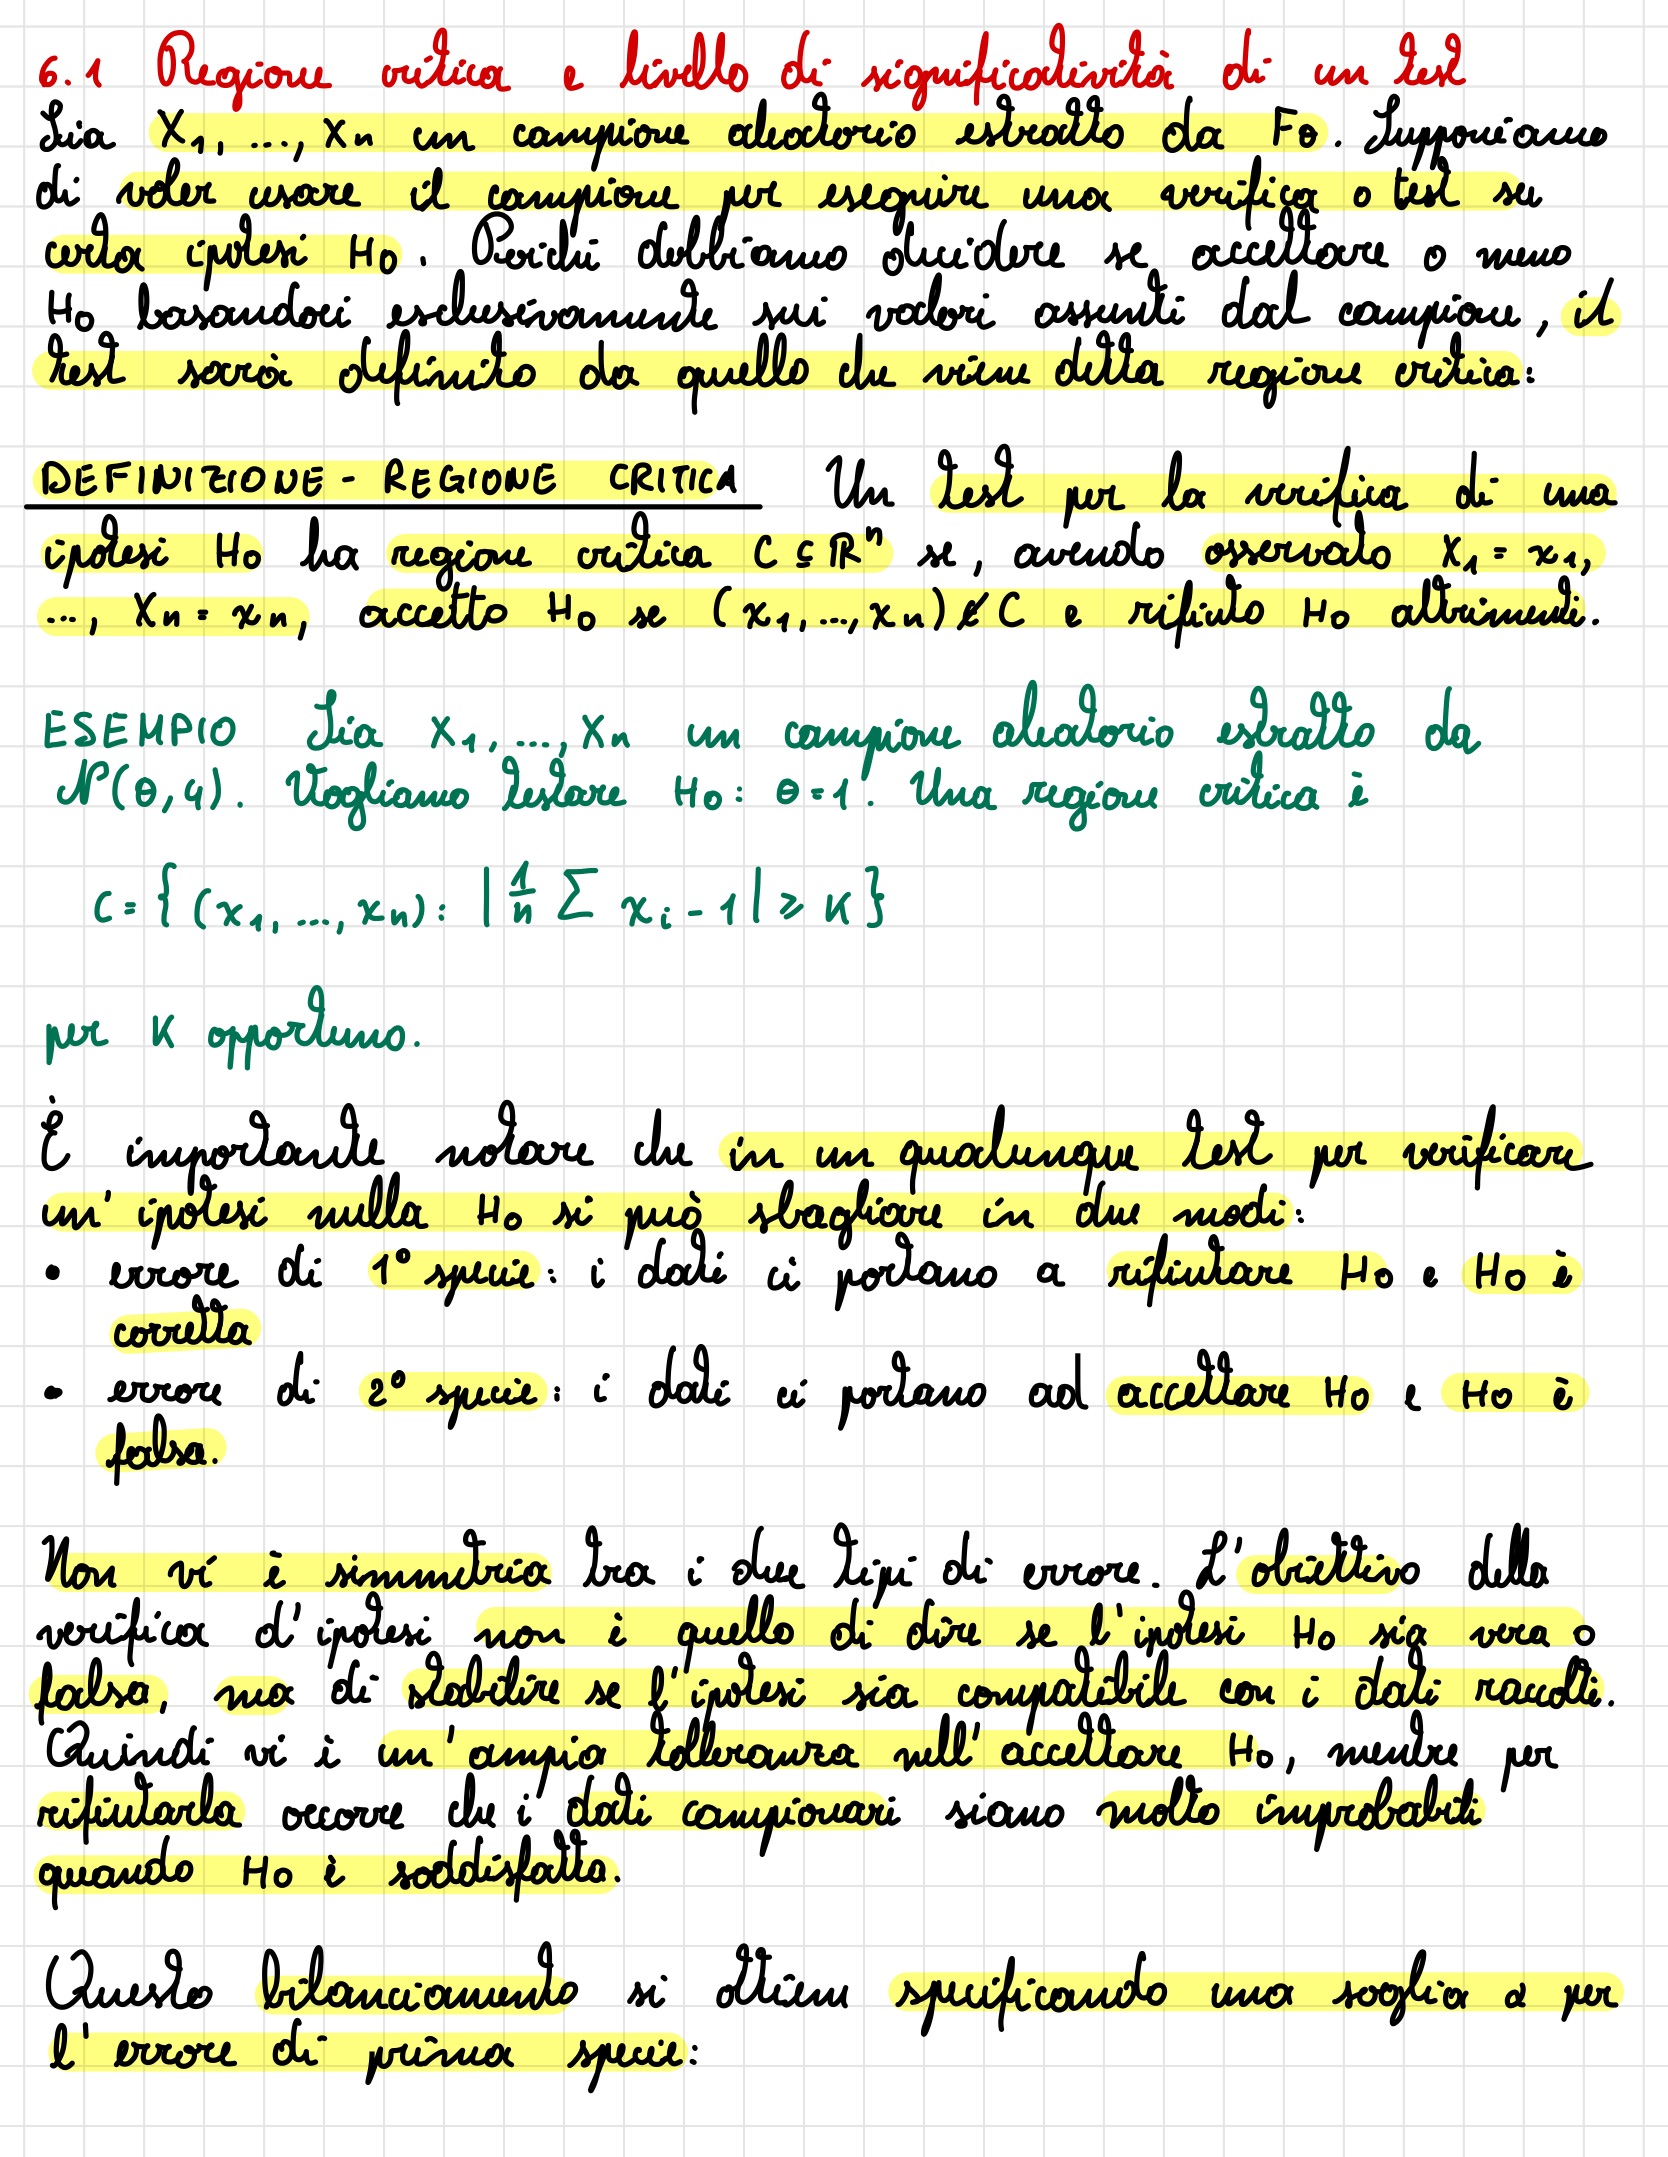 6.1 Regione critica e livello di significatività di un test
Sia X₁, ..., Xₙ un campione aleatorio estratto da Fθ. Supponiamo
di voler usare il campione per eseguire una verifica o test su
certa ipotesi H₀. Poiché dobbiamo decidere se accettare o meno
H₀ basandoci esclusivamente sui valori assunti dal campione, il
test sarà definito da quello che viene detta regione critica:
DEFINIZIONE - REGIONE CRITICA Un test per la verifica di una
ipotesi H₀ ha regione critica C ⊆ ℝⁿ se, avendo osservato X₁ = x₁,
..., Xₙ = xₙ, accetto H₀ se (x₁, ..., xₙ) ∉ C e rifiuto H₀ altrimenti.
ESEMPIO Sia X₁, ..., Xₙ un campione aleatorio estratto da
N(θ, 4). Vogliamo testare H₀: θ = 1. Una regione critica è
C = { (x₁, ..., xₙ): | 1/n Σ xᵢ - 1 | ≥ K }
per K opportuno.
È importante notare che in un qualunque test per verificare
un'ipotesi nulla H₀ si può sbagliare in due modi:
• errore di 1° specie: i dati ci portano a rifiutare H₀ e H₀ è
corretta
• errore di 2° specie: i dati ci portano ad accettare H₀ e H₀ è
falsa.
Non vi è simmetria tra i due tipi di errore. L'obiettivo della
verifica d'ipotesi non è quello di dire se l'ipotesi H₀ sia vera o
falsa, ma di stabilire se l'ipotesi sia compatibile con i dati raccolti.
Quindi vi è un'ampia tolleranza nell'accettare H₀, mentre per
rifiutarla occorre che i dati campionari siano molto improbabili
quando H₀ è soddisfatta.
Questo bilanciamento si ottiene specificando una soglia α per
l'errore di prima specie: